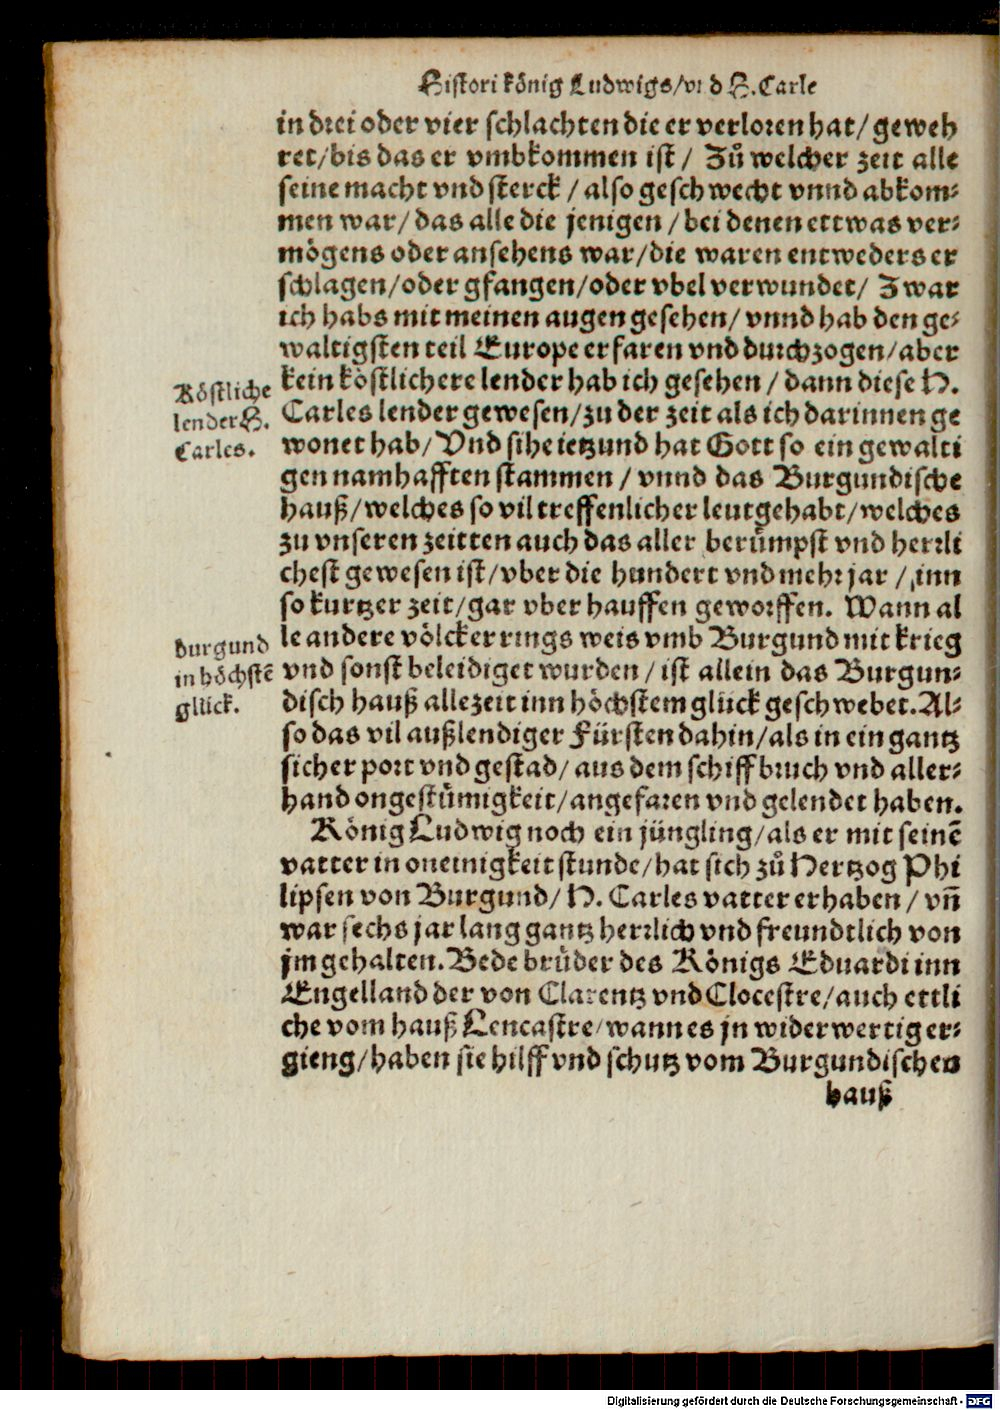 Histori könig Ludwigs/vnd H. Carle
in drei oder vier schlachten die er verloren hat/geweh
ret/bis das er vmbkommen ist/ Zů welcher zeit alle
seine macht vnd sterck/also geschwecht vnnd abkom⸗
men war/das alle die jenigen/bei denen ettwas ver⸗
mögens oder ansehens war/die waren entweders er
schlagen/oder gfangen/oder vbel verwundet/ Zwar
ich habs mit meinen augen gesehen/vnnd hab den ge⸗
waltigsten teil Europe erfaren vnd durchzogen/aber
Köstliche
lender H.
Carles.
kein köstlichere lender hab ich gesehen/dann diese H.
Carles lender gewesen/zu der zeit als ich darinnen ge
wonet hab/Vnd sihe ietzund hat Gott so ein gewalti
gen namhafften stammen/vnnd das Burgundische
hauß/welches so vil treffenlicher leut gehabt/welches
zu vnseren zeitten auch das aller berůmpst vnd herrli
chest gewesen ist/vber die hundert vnd mehr jar/inn
so kurtzer zeit/gar vber hauffen geworffen. Wann al
burgund
in höchstē
glück.
le andere völcker rings weis vmb Burgund mit krieg
vnd sonst beleidiget wurden/ist allein das Burgun⸗
disch hauß allezeit inn höchstem glück geschwebet. Al⸗
so das vil außlendiger Fürsten dahin/als in ein gantz
sicher port vnd gestad/aus dem schiffbruch vnd aller⸗
hand ongestůmigkeit/angefaren vnd gelendet haben.
König Ludwig noch ein jüngling/als er mit seinē
vatter in oneinigkeit stunde/hat sich zů Hertzog Phi
lipsen von Burgund/H. Carles vatter erhaben/vn̄
war sechs jar lang gantz herrlich vnd freundtlich von
jm gehalten. Bede brůder des Königs Eduardi inn
Engelland der von Clarentz vnd Clocestre/auch ettli
che vom hauß Lencastre/wann es jn widerwertig er⸗
gieng/haben sie hilff vnd schutz vom Burgundischen
hauß
Digitalisierung gefördert durch die Deutsche Forschungsgemeinschaft - DFG